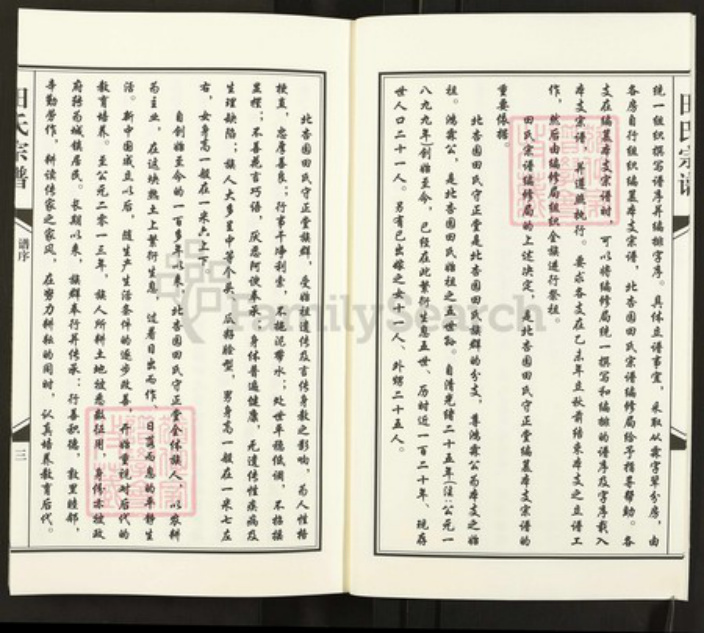 田氏宗谱
统一组织撰写谱序并编排字序。具体立谱事宜，采取从霖字辈分房，由
各房自行组织编纂本支宗谱，北杏园田氏宗谱编修局给予指善帮助。各
支在编纂本支宗谱时，可以将编修局统一撰写和编排的谱序及字序载入
本支宗谱，并遵照执行。要求各支在己未年立秋前结束本支之立谱工
作，然后由编修局组织全族进行祭祖。
田氏宗谱编修局的上述决定，是北杏园田氏守正堂编纂本支宗谱的
重要依据。
北杏园田氏守正堂是北杏园田氏族群的分支，尊鸿霖公为本支之始
祖。鸿霖公，是北杏园田氏始祖之五世孙。自清光绪二十五年(注:公元一
八九九年)创始至今，已经在此繁衍生息五世、历时近一百二十年、现存
世人口二十一人。另有已出嫁之女十一人、外甥二十五人。
北杏园田氏守正堂族群，受始祖遗传及言传身教之影响，为人性格
梗直，忠厚善良；行事干净利索，不拖泥带水；处世平稳低调，不招摇
显摆；不善花言巧语，厌恶阿谀奉承。身体普遍健康，无遗传性疾病及
生理缺陷；族人大多呈中等个头，瓜籽脸型，男身高一般在一米七左
右，女身高一般在一米六上下
自创始至今的一百多年以来，北杏园田氏守正堂全体族人，以农耕
为主业，在这块热土上繁衍生息，过着日出而作、日落而息的平静生
活。新中国成立以后，随生产生活条件的逐步改善，开始重视对后代的
教育培养。至公元二零一三年，族人所耕土地被悉数征用，身份亦被政
府转为城镇居民。长期以来，族群奉行并传承：行善积德，敦里睦邻，
辛勤劳作，耕读传家之家风，在努力耕种的同时，认真培养教育后代。
田氏宗谱
谱序
三
FamilySearch